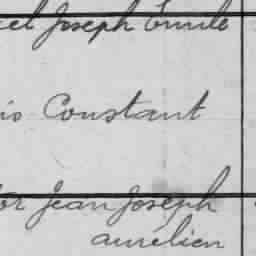 el Joseph Emile
is Constant
or Jean Joseph
aurélien